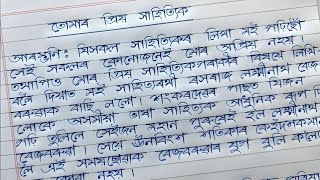 তোমাৰ প্ৰিয় সাহিত্যিক
আৰম্ভণি: যিসকল সাহিত্যিকৰ লিখা মই পঢ়িছোঁ
সেই সকলৰ কোনোজনেই মোৰ অপ্ৰিয় নহয়
তথাপিও মোৰ প্ৰিয় সাহিত্যিকগৰাকীৰ বিষয়ে লিখি
বলৈ দিয়াত মই সাহিত্যৰথী ৰসৰাজ লক্ষ্মীনাথ বেজ
বৰুৱাক বাছি ললো। শংকৰদেৱৰ পাছতে যিজন
লোকে অসমীয়া ভাষা সাহিত্যক আধুনিক ৰূপ দি
গঢ়ি তুলিলে সেইজন মহান পুৰুষেই হ'ল লক্ষ্মীনাথ
বেজবৰুৱা। সেয়ে ঊনবিংশ শতিকাৰ
লৈ এই সময়ছোৱাক বেজবৰুৱাৰ যুগ বুলি কলেও
নহয়।